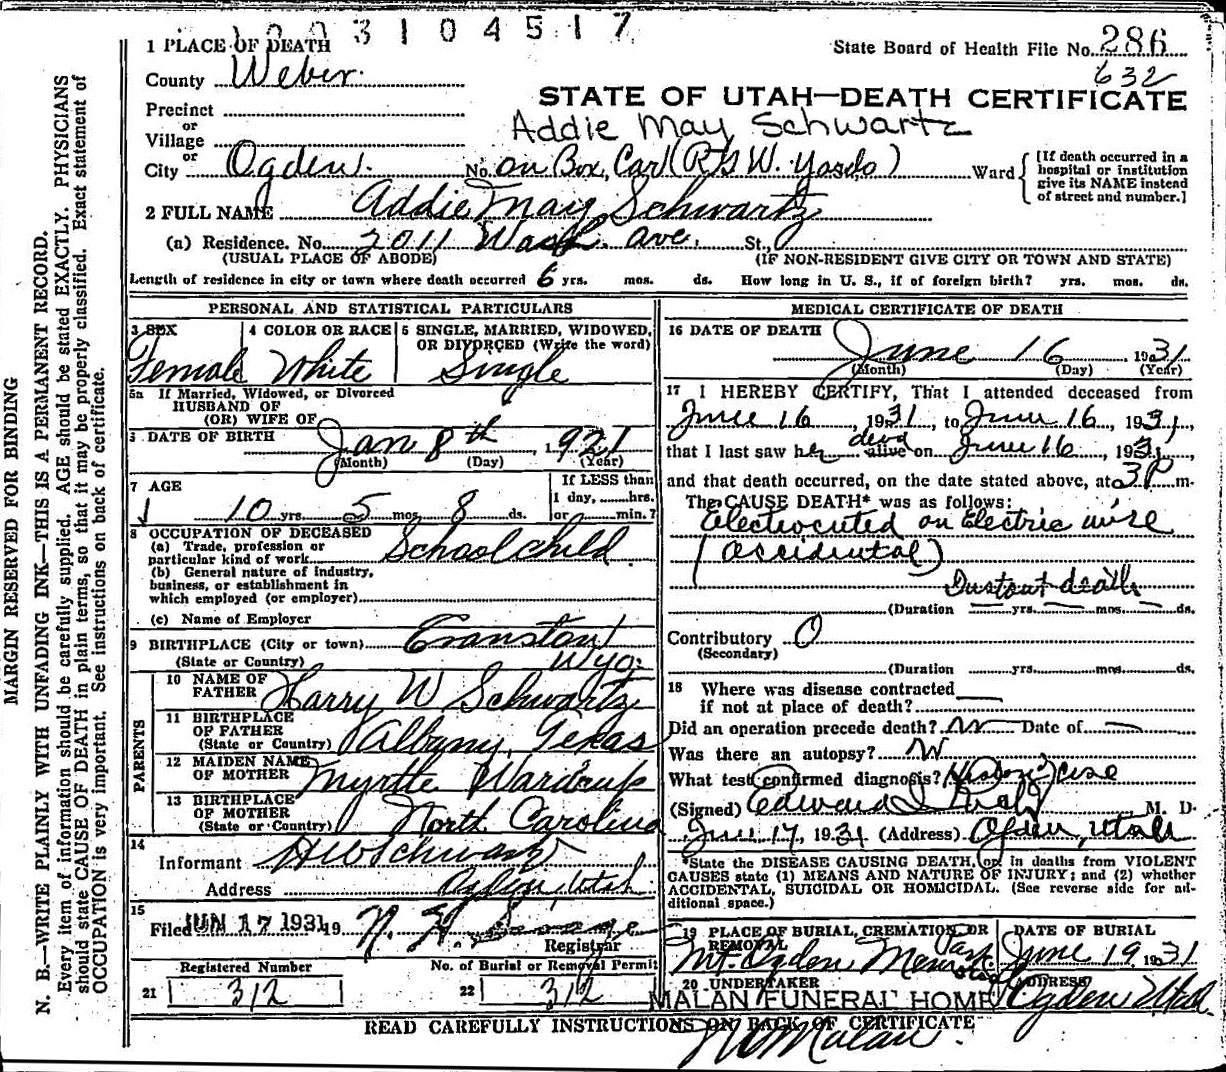 1003104517
1 PLACE OF DEATH
State Board of Health File No. 286
County Weber.
632
Precinct
STATE OF UTAH—DEATH CERTIFICATE
or
Village
Addie May Schwartz
or
City Ogden. No. on Box Car (R G W. Yards) Ward
[If death occurred in a
hospital or institution
give its NAME instead
of street and number.]
2 FULL NAME Addie May Schwartz
(a) Residence. No. 2011 Wash. ave. St.,
(USUAL PLACE OF ABODE) (IF NON-RESIDENT GIVE CITY OR TOWN AND STATE)
Length of residence in city or town where death occurred 6 yrs. mos. ds. How long in U. S., if of foreign birth? yrs. mos. ds.
PERSONAL AND STATISTICAL PARTICULARS
3 SEX
Female
4 COLOR OR RACE
White
5 SINGLE, MARRIED, WIDOWED,
OR DIVORCED (Write the word)
Single
5a If Married, Widowed, or Divorced
HUSBAND OF
(OR) WIFE OF
DATE OF BIRTH Jan 8th, 1921
(Month) (Day) (Year)
7 AGE
10 yrs. 5 mos. 8 ds.
If LESS than
1 day, ......hrs.
or ......min.?
8 OCCUPATION OF DECEASED
(a) Trade, profession or
particular kind of work School child
(b) General nature of industry,
business, or establishment in
which employed (or employer)
(c) Name of Employer
9 BIRTHPLACE (City or town)
(State or Country) Wyo.
PARENTS
10 NAME OF
FATHER Harry W Schwartz
11 BIRTHPLACE
OF FATHER
(State or Country) Albany, Texas
12 MAIDEN NAME
OF MOTHER Myrtle Wardrup
13 BIRTHPLACE
OF MOTHER
(State or Country) North Carolina
14
Informant H W Schwartz
Address Ogden, Utah
15
Filed JUN 17 1931 19
Registrar
Registered Number
21 312
No. of Burial or Removal Permit
22 312
MEDICAL CERTIFICATE OF DEATH
16 DATE OF DEATH June 16, 1931
(Month) (Day) (Year)
17 I HEREBY CERTIFY, That I attended deceased from
June 16, 1931, to June 16, 1931,
dead
that I last saw her alive on June 16, 1931,
and that death occurred, on the date stated above, at 3P m.
The CAUSE DEATH* was as follows:
Electrocuted on Electric wire
(accidental)
Instant death
(Duration yrs. mos. ds.
Contributory O
(Secondary)
(Duration yrs. mos. ds.
18 Where was disease contracted
if not at place of death?
Did an operation precede death? Date of
Was there an autopsy?
What test confirmed diagnosis?
(Signed) Edward I M. D.
June 17, 1931 (Address) Ogden, Utah
*State the DISEASE CAUSING DEATH, or in deaths from VIOLENT
CAUSES state (1) MEANS AND NATURE OF INJURY; and (2) whether
ACCIDENTAL, SUICIDAL OR HOMICIDAL. (See reverse side for ad-
ditional space.)
19 PLACE OF BURIAL, CREMATION, OR
REMOVAL
Mt. Ogden Memorial Park
DATE OF BURIAL
June 19 1931
20 UNDERTAKER
MALAN FUNERAL HOME
ADDRESS
Ogden Utah.
READ CAREFULLY INSTRUCTIONS ON BACK OF CERTIFICATE
Malan.
MARGIN RESERVED FOR BINDING
N. B.—WRITE PLAINLY WITH UNFADING INK—THIS IS A PERMANENT RECORD.
Every item of information should be carefully supplied. AGE should be stated EXACTLY. PHYSICIANS
should state CAUSE OF DEATH in plain terms, so that it may be properly classified. Exact statement of
OCCUPATION is very important. See instructions on back of certificate.